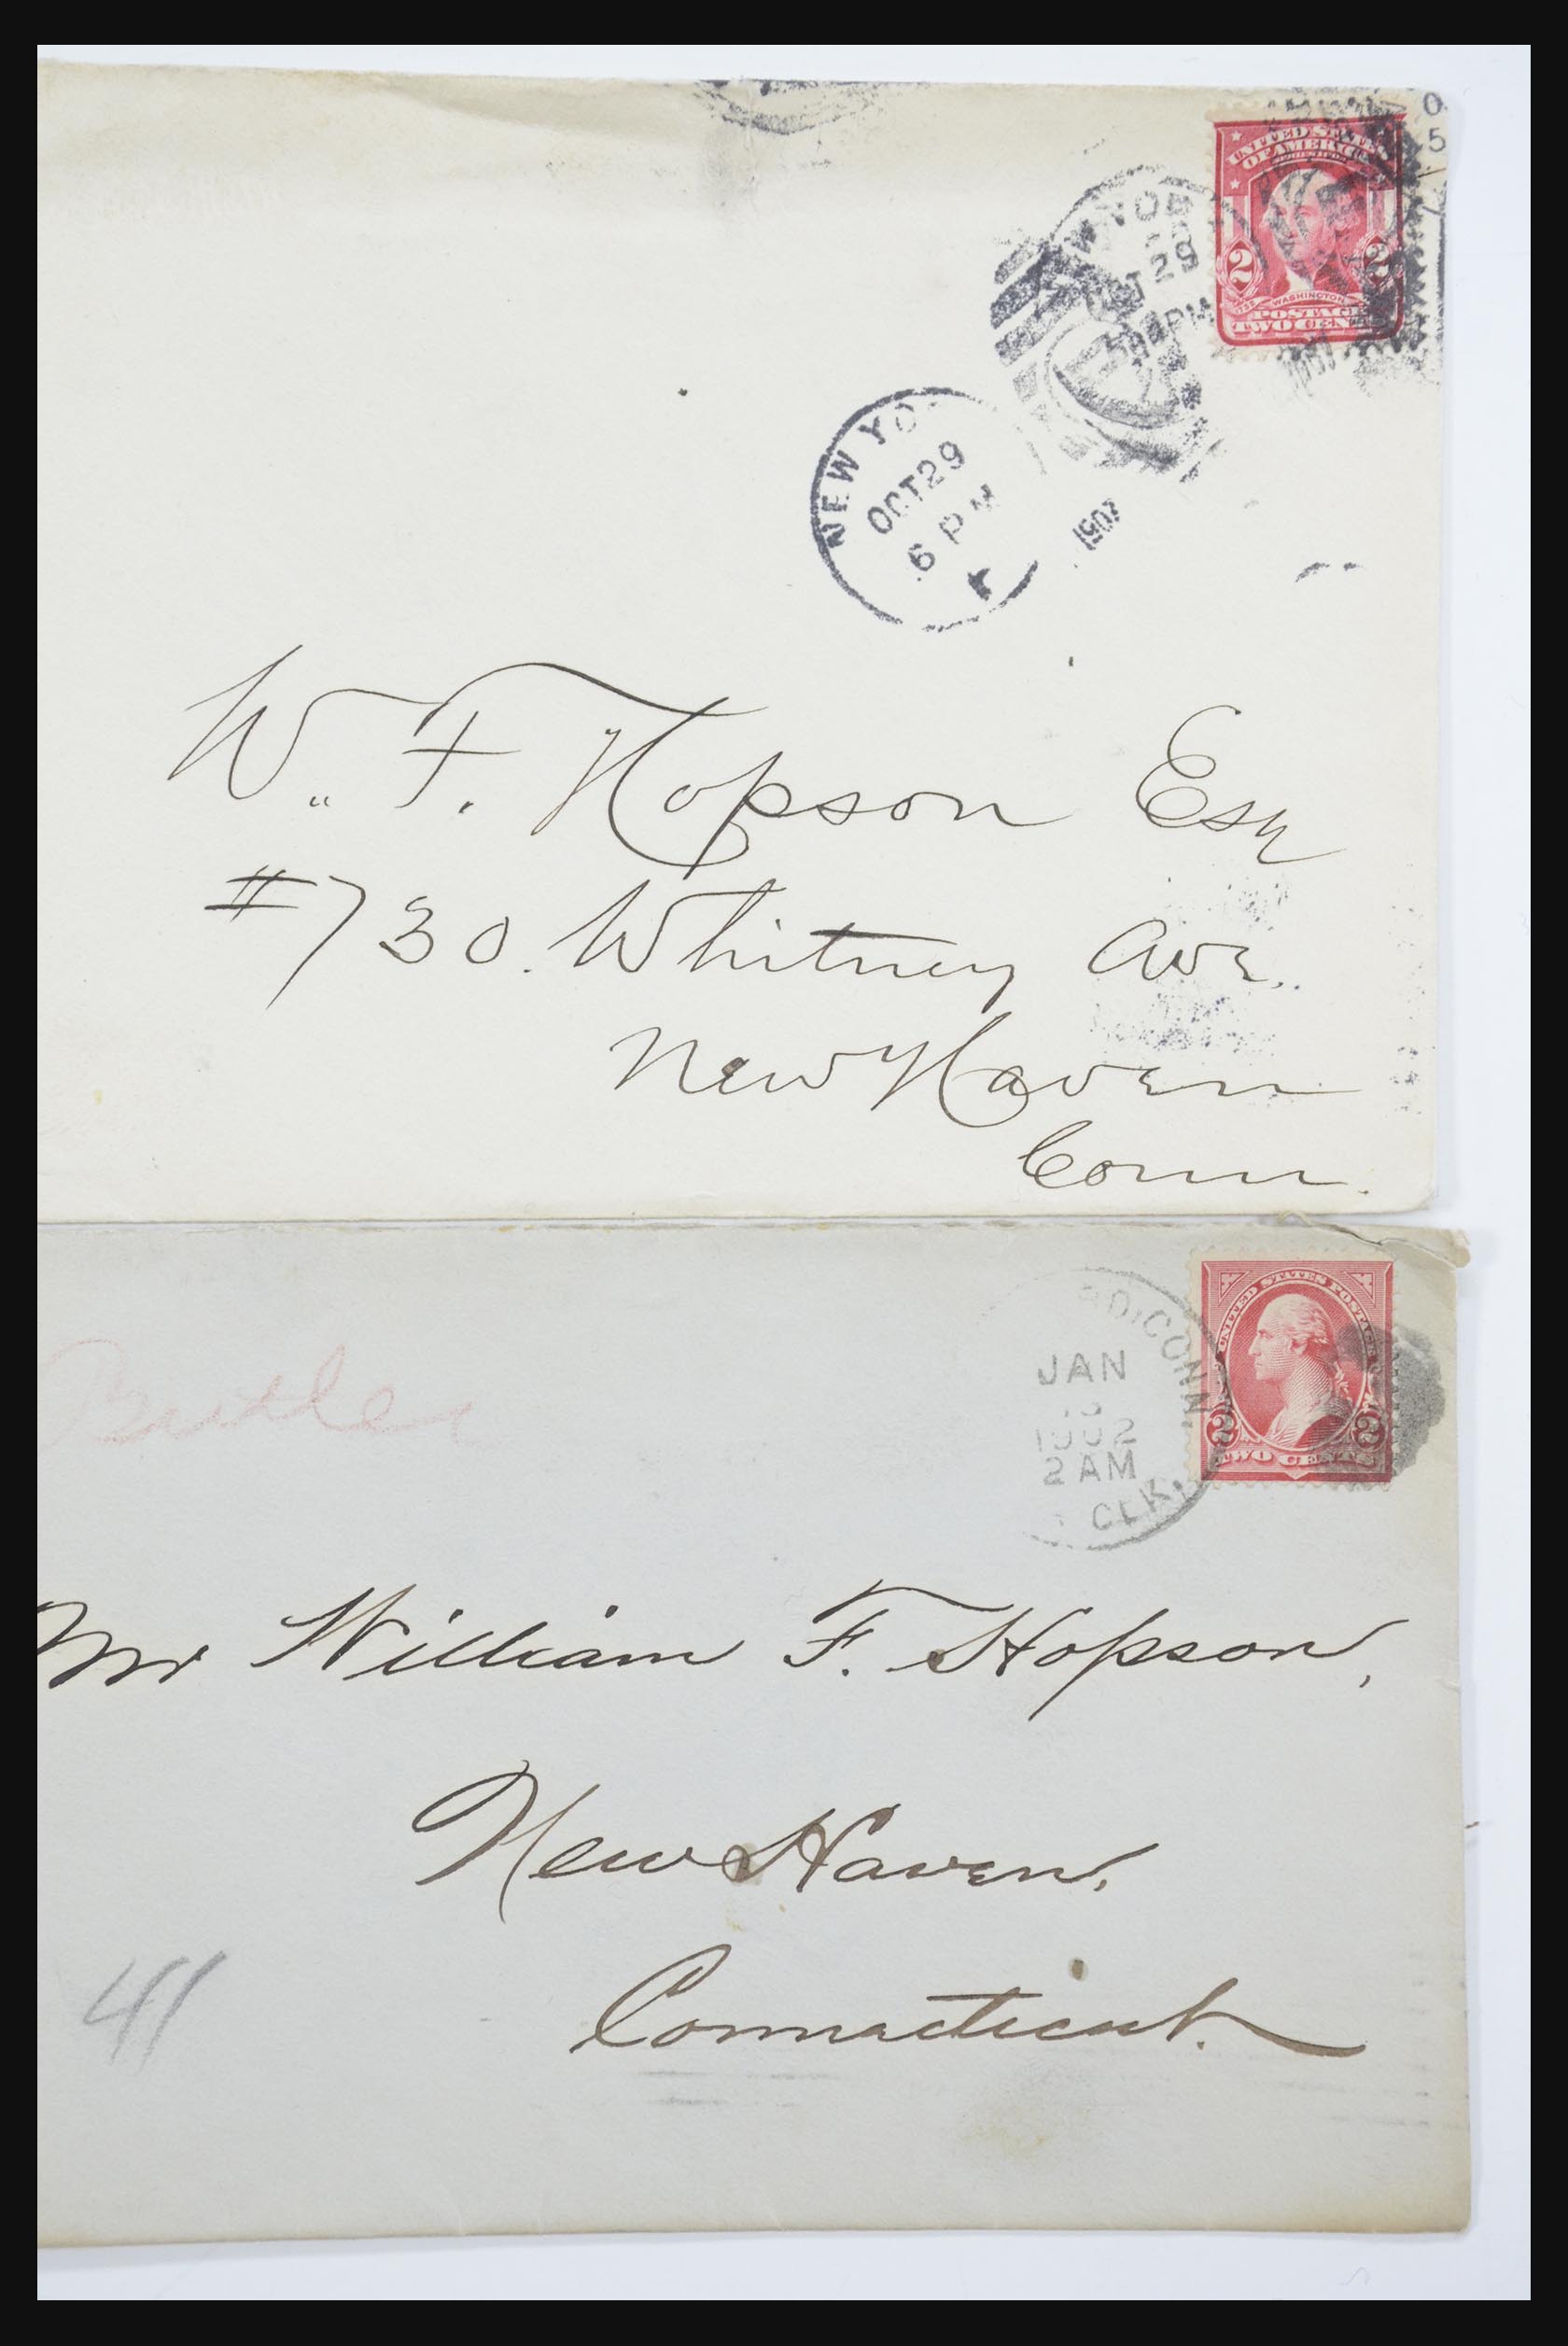 UNITED STATES
OF AMERICA
2 2
WASHINGTON
POSTAGE
TWO CENTS
OCT 29
PM
NEW YO
OCT 29
6 PM
1907
W. F. Hopson Esq
#730. Whitney Ave.
New Haven
Conn.
UNITED STATES POSTAGE
2 2
TWO CENTS
RD, CONN.
JAN
1902
2 AM
CLK.
Mr William F. Hopson,
New Haven,
Connecticut.
411